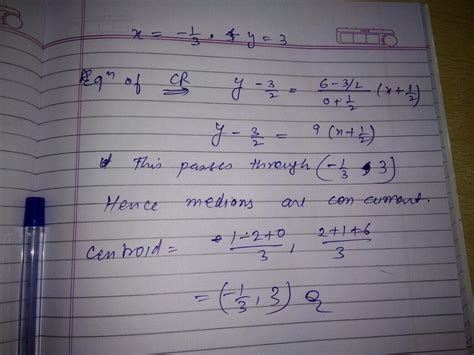 x = -1/3 . & y = 3
Eqn of CR y - 3/2 = (6 - 3/2)/(0 + 1/2) (x + 1/2)
y - 3/2 = 9 (x + 1/2)
This passes through (-1/3, 3)
Hence medians are concurrent.
Centroid = (1-2+0)/3, (2+1+6)/3
= (-1/3, 3)